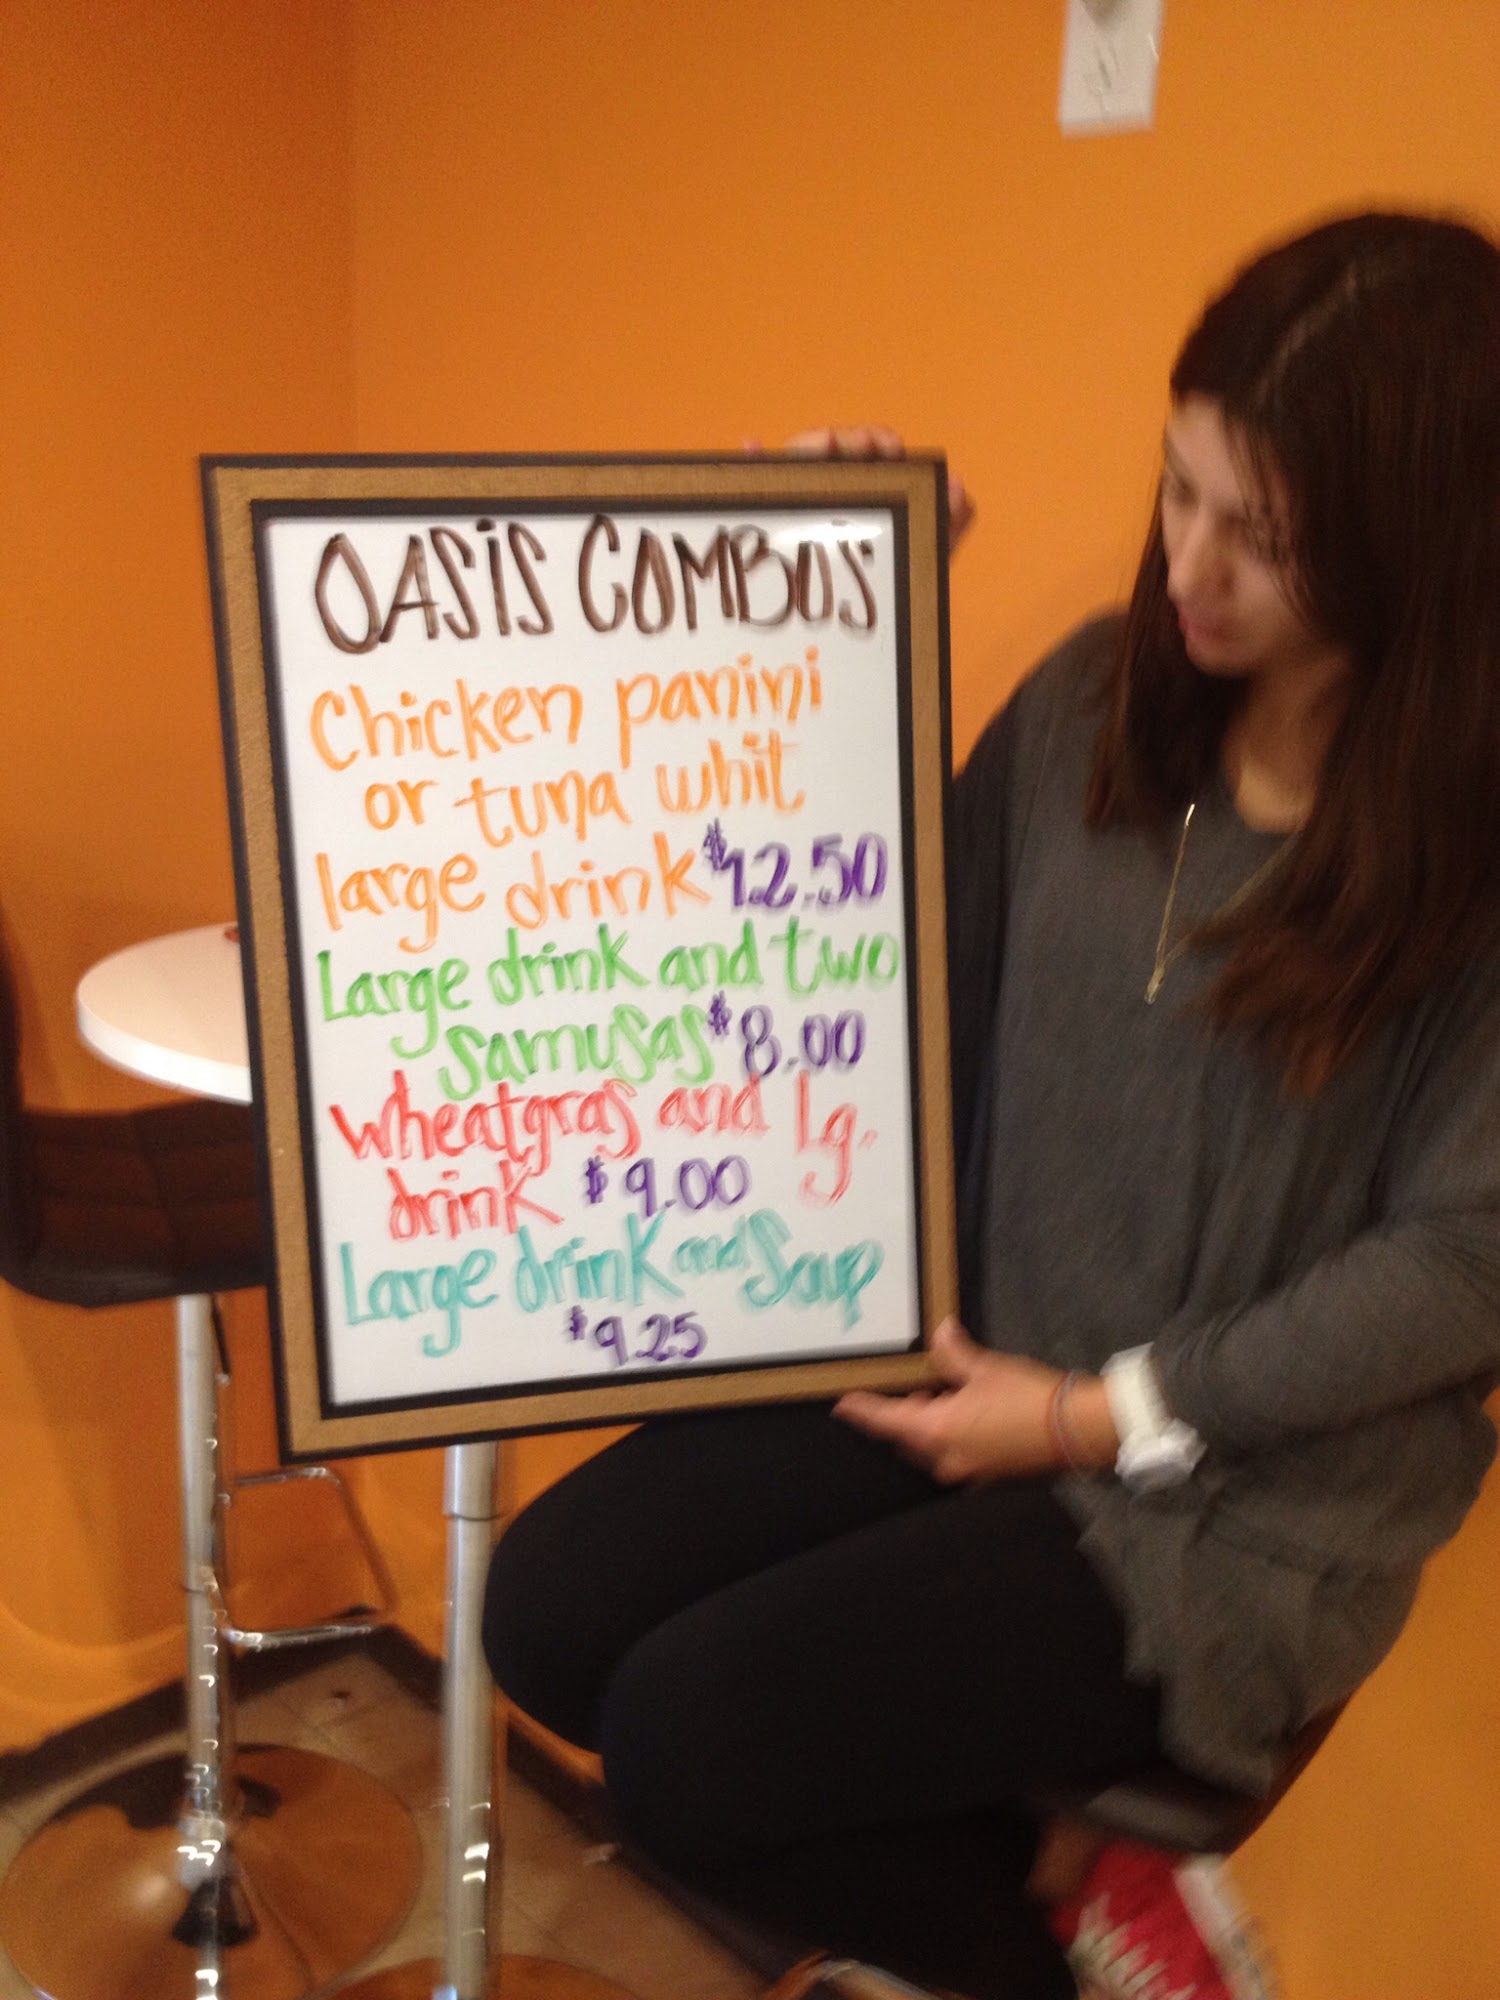 OASIS COMBOS
Chicken panini
or tuna whit
large drink $12.50
Large drink and two
samusas $8.00
wheatgras and lg.
drink $9.00
Large drink and Soup
$9.25